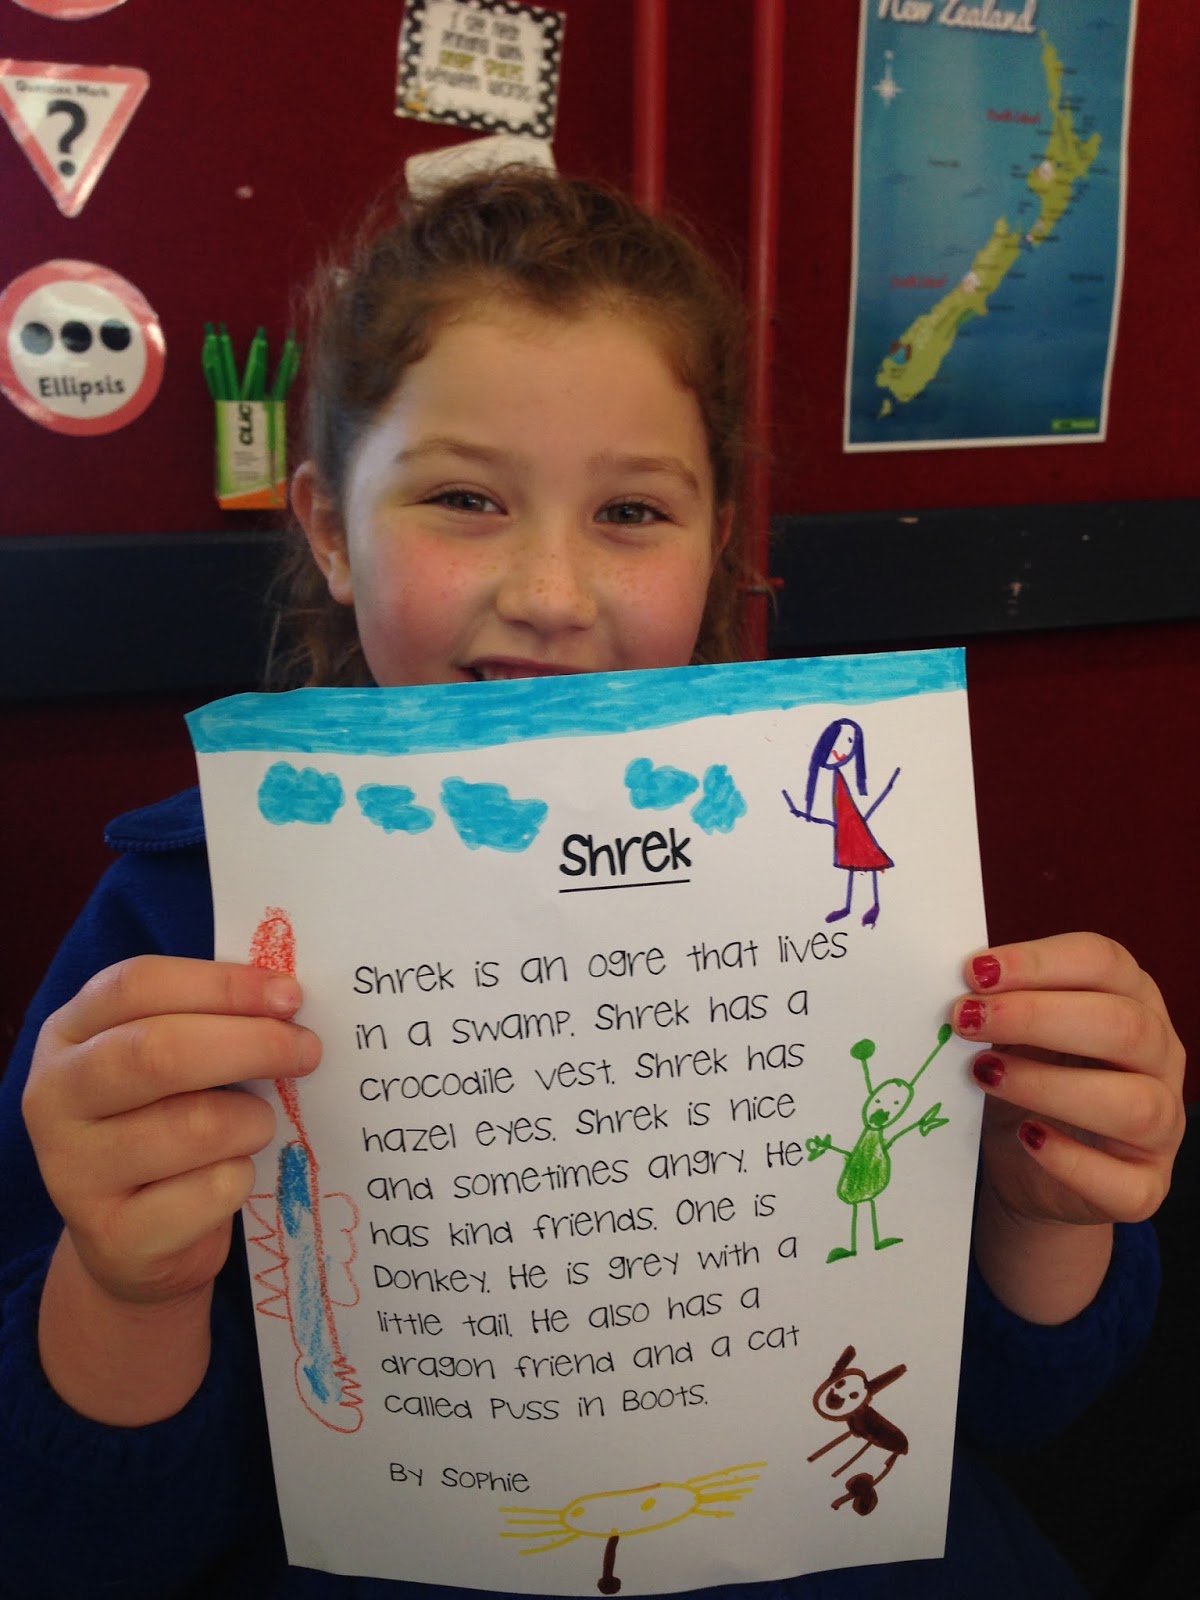 Question Mark
?
Ellipsis
CLIC
New Zealand
Shrek
Shrek is an ogre that lives
in a swamp. Shrek has a
crocodile vest. Shrek has
hazel eyes. Shrek is nice
and sometimes angry. He
has kind friends. One is
Donkey. He is grey with a
little tail. He also has a
dragon friend and a cat
called Puss in Boots.
By Sophie